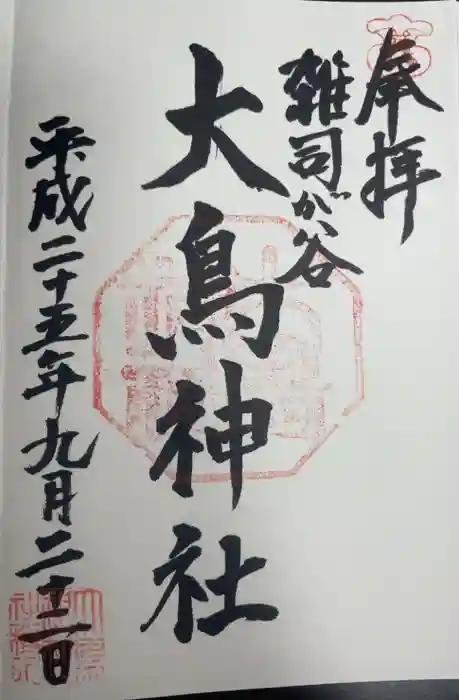 奉拝
雑司が谷
大鳥神社
平成二十五年九月二十一日